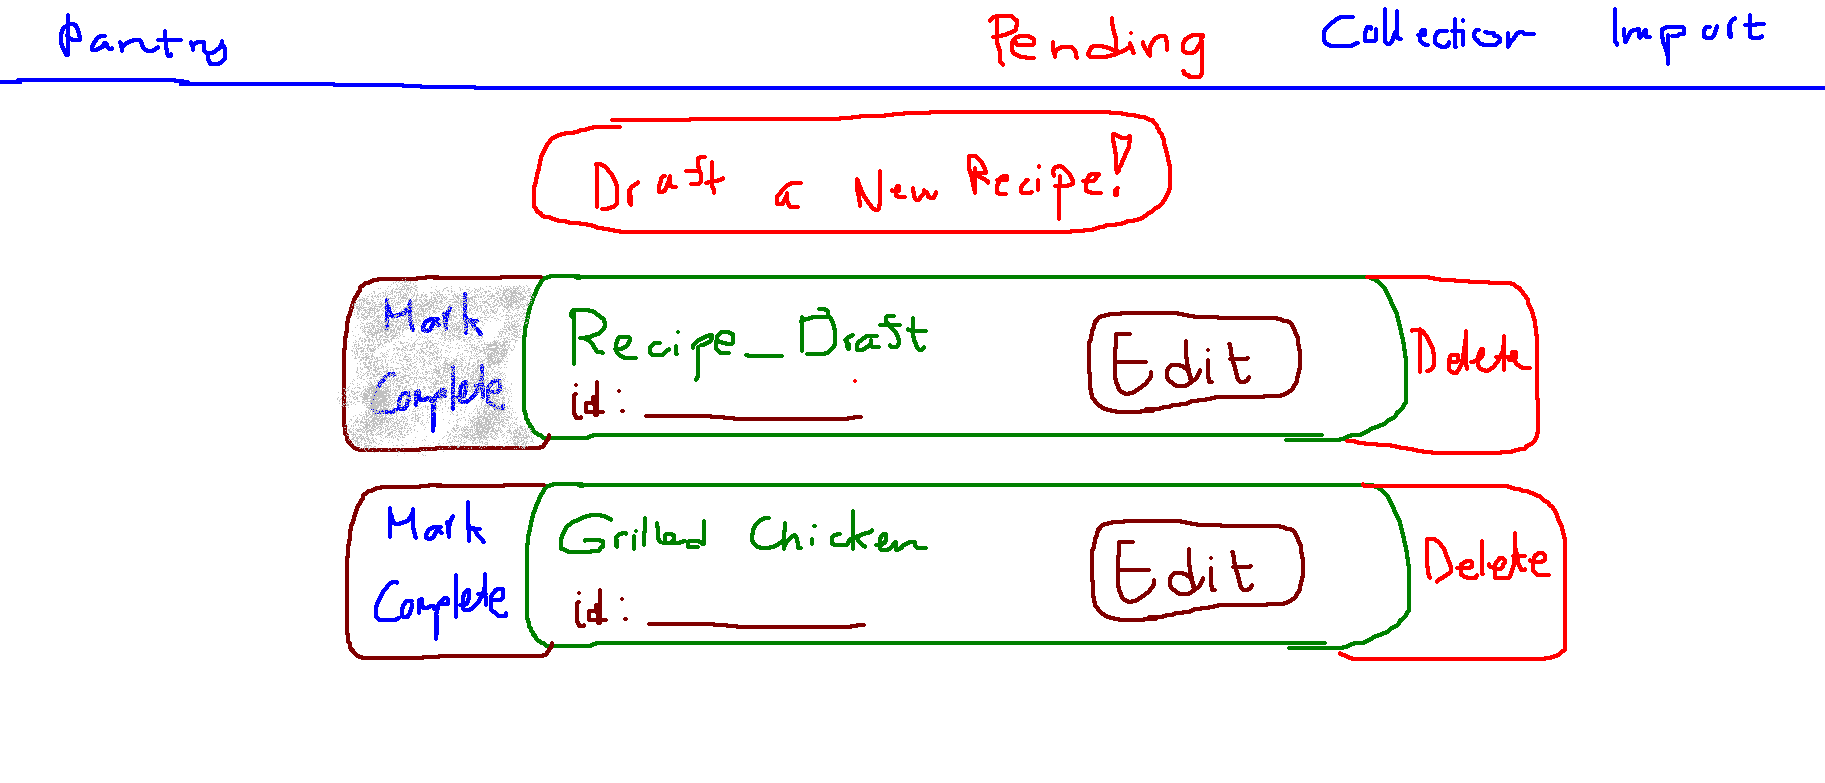 Pantry Pending Collection Import
Draft a New Recipe!
Mark Complete
Recipe_Draft
id: ________
Edit
Delete
Mark Complete
Grilled Chicken
id: ________
Edit
Delete